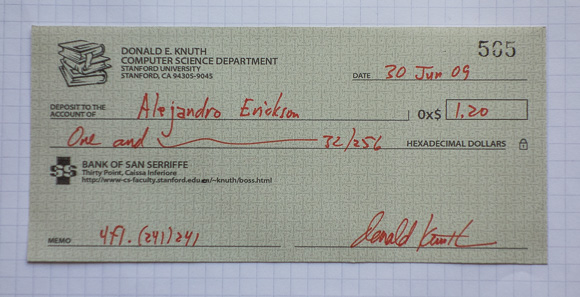 565
DONALD E. KNUTH
COMPUTER SCIENCE DEPARTMENT
STANFORD UNIVERSITY
STANFORD, CA 94305-9045
DATE 30 Jun 09
DEPOSIT TO THE
ACCOUNT OF Alejandro Erickson 0x$ 1.20
One and 32/256 HEXADECIMAL DOLLARS
BANK OF SAN SERRIFFE
Thirty Point, Caissa Inferiore
http://www-cs-faculty.stanford.edu/~knuth/boss.html
MEMO 4f1. (241)241 Donald Knuth